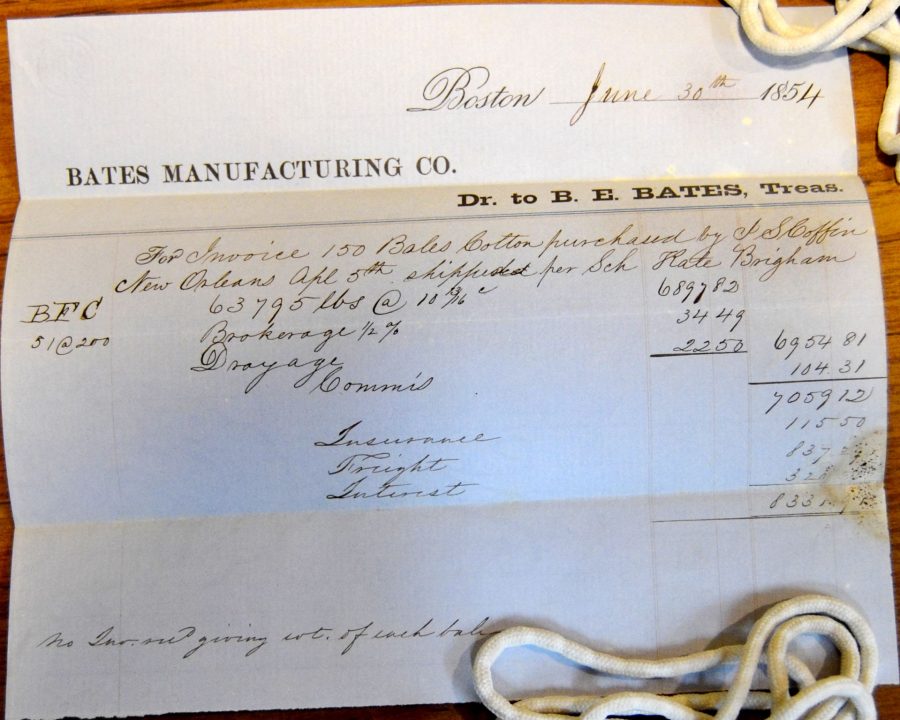 Boston June 30th 1854
BATES MANUFACTURING CO.
Dr. to B. E. BATES, Treas.
For Invoice 150 Bales Cotton purchased by I S Coffin
New Orleans Apl 5th shipped per Sch Kate Brigham
BFC 63795 lbs @ 10 13/16 c 6897 82
51@200 Brokerage 1/2 % 34 49
Drayage 22 50 6954 81
Commis 104.31
7059 12
Insurance 115 50
Freight 837
Interest
833
No Inv. recd giving wt. of each bale